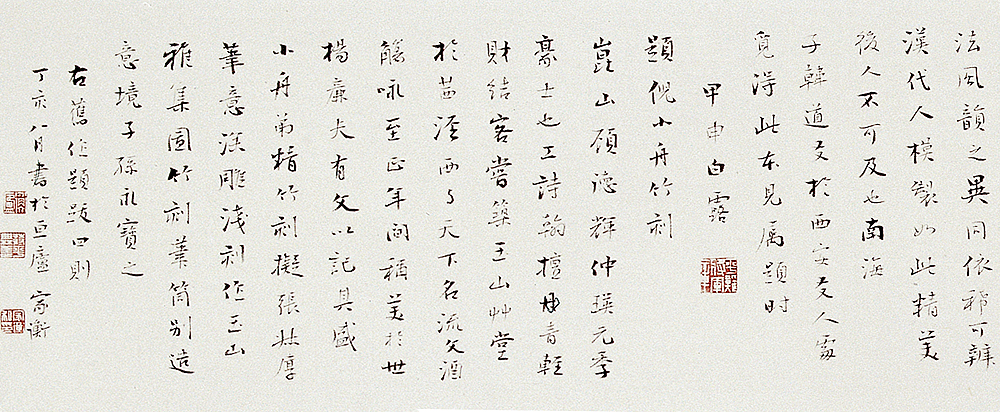 法風韻之異同依稀可辨
漢代人模製如此精美
後人不可及也南海
子韓道友於西安友人處
覓得此本見屬題時
甲申白露
題倪小舟竹刻
崑山顧德輝仲瑛元季
豪士也工詩翰擅丹青輕
財結客嘗築玉山艸堂
於茜涇西與天下名流文酒
觴咏至正年間稱美於世
楊廉夫有文以記其盛
小舟弟精竹刻擬張壯厚
筆意深雕淺刻作玉山
雅集圖竹刻筆筒別造
意境子孫永寶之
右舊作題跋四則
丁亥八月書於亘廬家衡